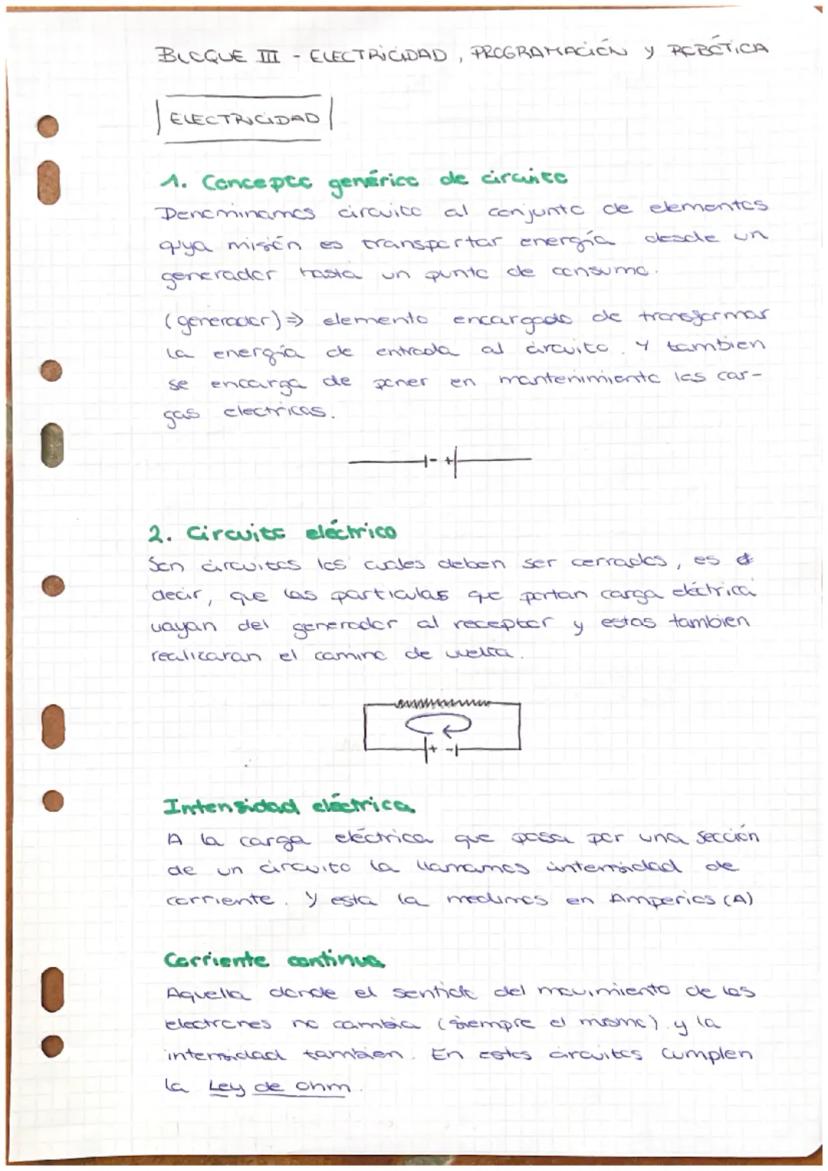 BLOQUE III - ELECTRICIDAD, PROGRAMACIÓN Y ROBÓTICA
ELECTRICIDAD
1. Concepto genérico de circuito
Denominamos circuito al conjunto de elementos
quya misión es transportar energía desde un
generador hasta un punto de consumo.
(generador) ⇒ elemento encargado de transformar
la energía de entrada al circuito. Y tambien
se encarga de poner en mantenimiento las car-
gas electricas.
- +
2. Circuito eléctrico
Son circuitos los cuales deben ser cerrados, es
decir, que las particulas que portan carga eléctrica
vayan del generador al receptor y estas tambien
realizaran el camino de vuelta.
+ -
Intensidad eléctrica
A la carga eléctrica que pasa por una sección
de un circuito la llamamos intensidad de
corriente. Y esta la medimos en Amperios (A)
Corriente continua
Aquella donde el sentido del movimiento de los
electrones no cambia (siempre el mismo) y la
intensidad tambien. En estos circuitos cumplen
la Ley de ohm.